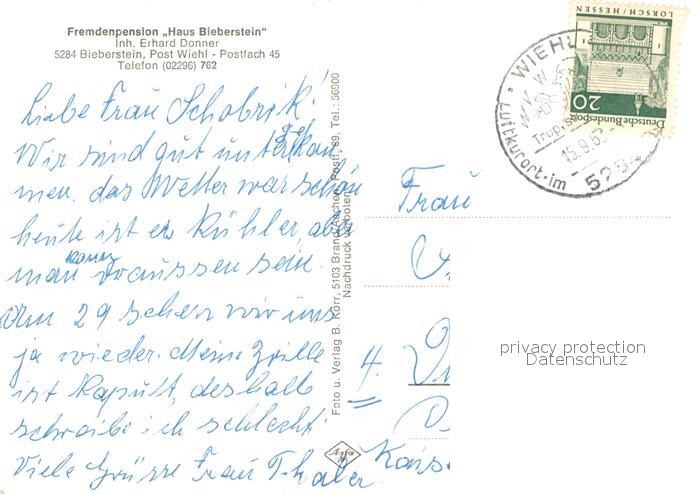 Fremdenpension „Haus Bieberstein"
Inh. Erhard Donner
5284 Bieberstein, Post Wiehl - Postfach 45
Telefon (02296) 762
Liebe Frau Schobrik!
Wir sind gut unterkom
men, das Wetter war schön
heute ist es kühler, aber
man kann draussen sein.
Am 29 sehen wir uns
ja wieder. Meine Brille
ist kaputt, deshalb
schreibe ich schlecht
Viele Grüsse Frau Thaler
Foto u. Verlag B. Korr, 5103 Brand/Aachen, Postf. 89, Tel.: 56000
Nachdruck verboten
Agfa
LORSCH/HESSEN
20
Deutsche Bundespost
WIEHL
Luftkurort im
15.9.6
Frau
4.
privacy protection
Datenschutz